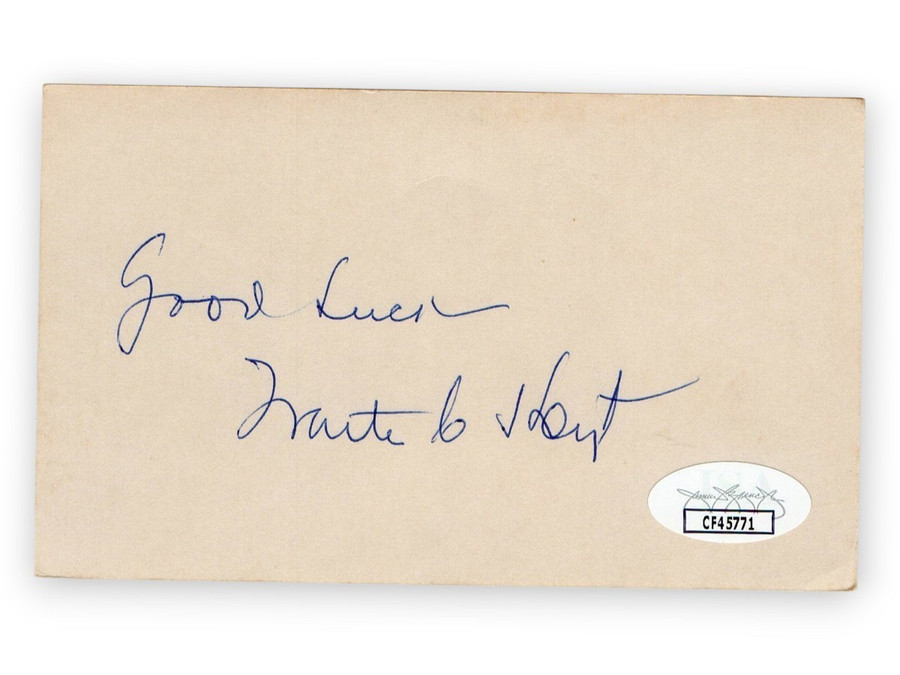 Good Luck
Waite C Hoyt
CF45771